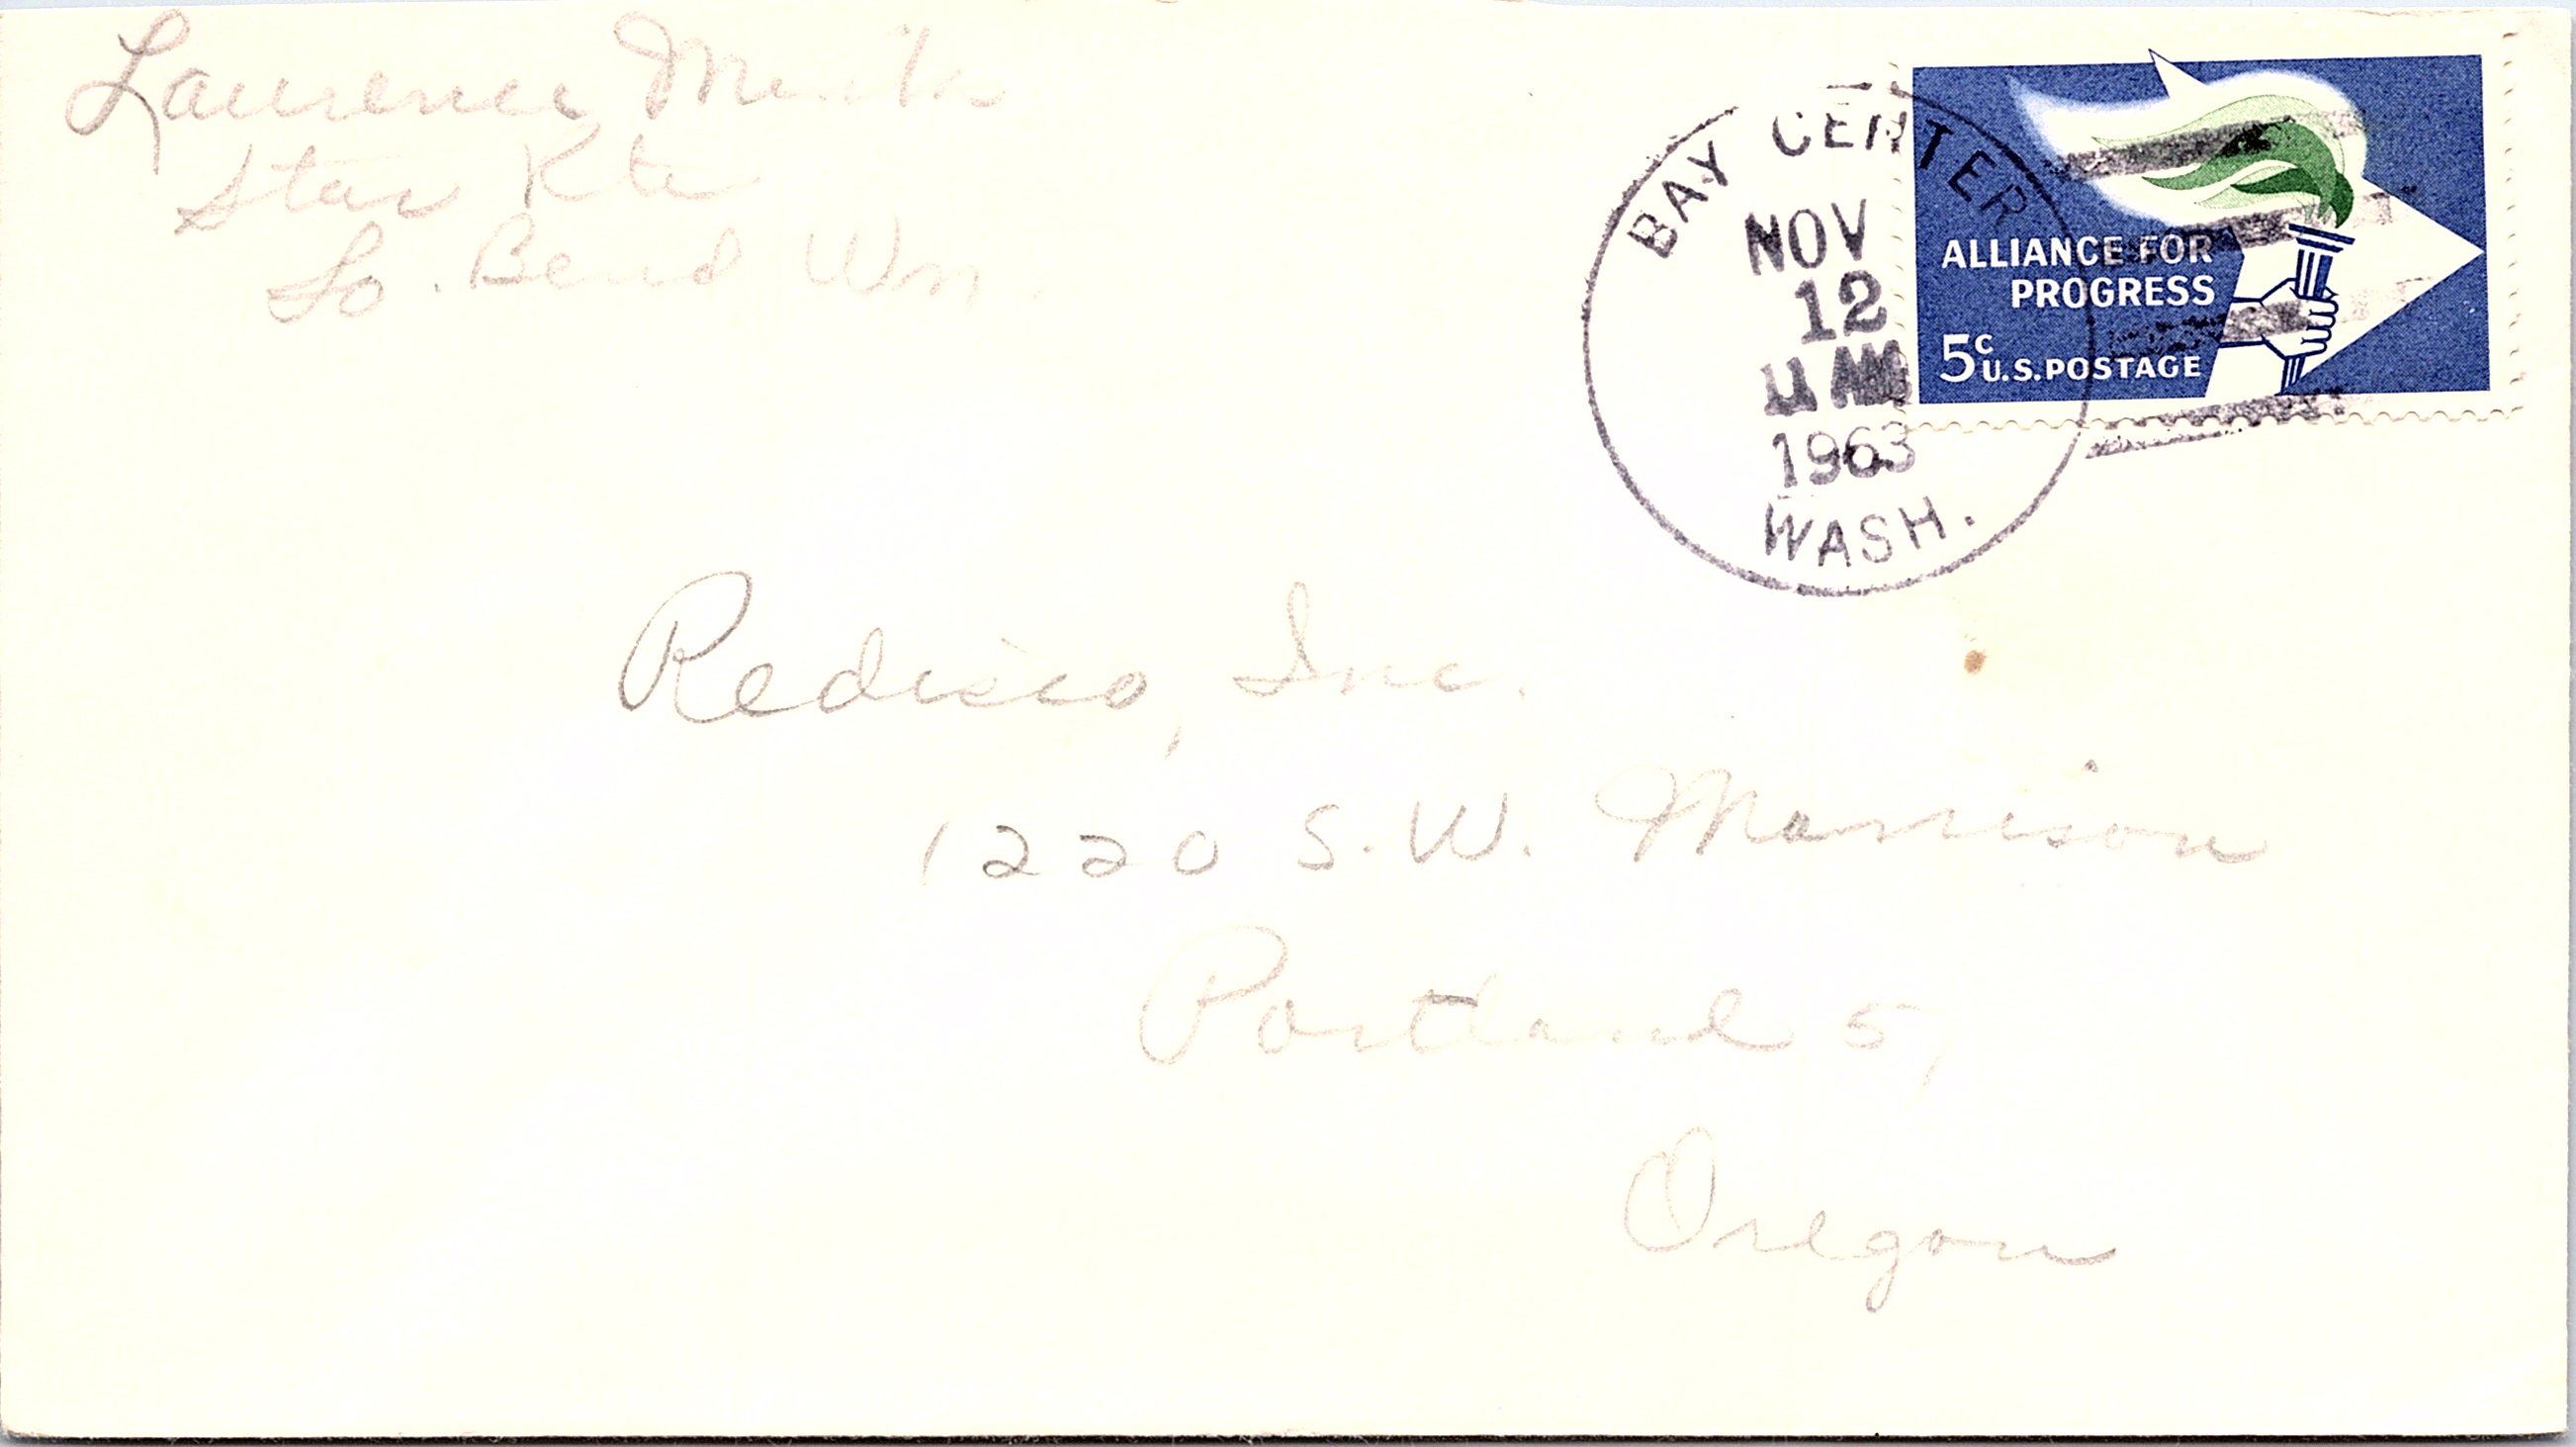 Laurence
Star Rte
So. Bend Wn.
BAY CENTER
NOV
12
11 AM
1963
WASH.
ALLIANCE FOR
PROGRESS
5c U.S. POSTAGE
Redisco, Inc.
1220 S.W. Morrison
Portland 5,
Oregon